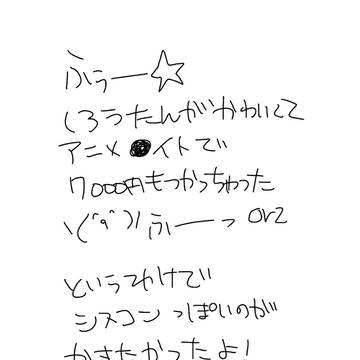 ふぅー☆
しろうたんがかわいくて
アニメ●イトで
7000円もつかっちゃった
\(^q^)/ふーっ orz
というわけで
シスコンっぽいのが
かきたかったよ!